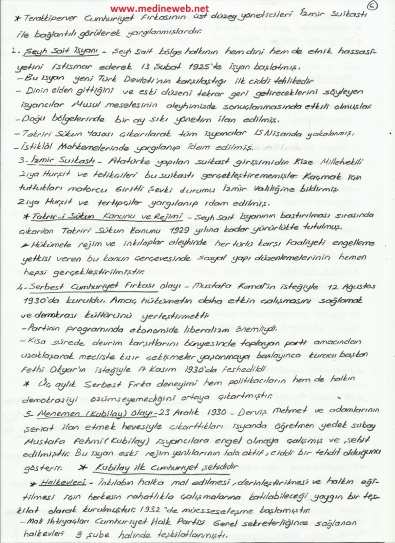 www.medineweb.net
6
* Terakkiperver Cumhuriyet Fırkasının üst düzey yöneticileri İzmir Suikasti
ile bağlantılı görülerek yargılanmışlardır.
1- Şeyh Sait İsyanı - Şeyh Sait bölge halkının hem dini hem de etnik hassasi-
yetini istismar ederek 13 Şubat 1925'te isyan başlatmış.
- Bu isyan yeni Türk Devleti'nin karşılaştığı ilk ciddi tehlikedir
- Dinin elden gittiğini ve eski düzeni tekrar geri getireceklerini söyleyen
isyancılar Musul meselesinin aleyhimizde sonuçlanmasında etkili olmuşlar
- Doğu bölgelerinde bir ay sıkı yönetim ilan edilmiş.
- Takriri Sükun Yasası çıkarılarak tüm isyancılar 15 Nisanda yakalanmış.
- İstiklal Mahkemelerinde yargılanıp idam edilmiş.
3- İzmir Suikasti - Atatürk'e yapılan suikast girişimidir. Rize Milletvekili
Ziya Hurşit ve tetikçileri bu suikasti gerçekleştirememişler. Kaçmak için
tuttukları motorcu Giritli Şevki durumu İzmir Valiliğine bildirmiş
Ziya Hurşit ve tertipçiler yargılanıp idam edilmiş.
* Takrir-i Sükun Kanunu ve Rejimi - Şeyh Sait isyanının bastırılması sırasında
çıkarılan Takriri Sükun Kanunu 1929 yılına kadar yürürlükte tutulmuş.
* Hükümete rejim ve inkılaplar aleyhinde her türlü karşı faaliyeti engelleme
yetkisi veren bu kanun çerçevesinde sosyal yapı düzenlemelerinin hemen
hepsi gerçekleştirilmiştir.
4- Serbest Cumhuriyet Fırkası olayı - Mustafa Kemal'in isteğiyle 12 Ağustos
1930'da kuruldu. Amaç hükümetin daha etkin çalışmasını sağlamak
ve demokrasi kültürünü yerleştirmekti.
- Partinin programında ekonomide liberalizm önemliydi.
- Kısa sürede devrim karşıtlarını bünyesinde toplayan parti amacından
uzaklaşarak mecliste kısır çekişmeler yaşanmaya başlayınca kurucu başkan
Fethi Okyar'ın isteğiyle 17 Kasım 1930'da feshedildi.
* Üç aylık Serbest Fırka deneyimi hem politikacıların hem de halkın
demokrasiyi özümseyemediğini ortaya çıkartmıştır.
5- Menemen (Kubilay) Olayı - 23 Aralık 1930 - Derviş mehmet ve adamlarının
şeriat ilan etmek hevesiyle çıkarttıkları isyanda öğretmen yedek subay
Mustafa Fehmi (Kubilay) isyancılara engel olmaya çalışmış ve şehit
edilmiştir. Bu isyan eski rejim yanlılarının hala aktif, ciddi bir tehdit olduğunu
gösterir. * Kubilay ilk Cumhuriyet şehididir
* Halkevleri - İnkılabın halka mal edilmesi, derinleştirilmesi ve halkın eği-
tilmesi için herkesin rahatlıkla çalışmalarına katılabileceği yaygın bir teş-
kilat olarak kurulmuştur. 1932'de müesseseleşme başlamıştır.
- Mali ihtiyaçları Cumhuriyet Halk Partisi Genel sekreterliğince sağlanan
halkevleri 9 şube halinde teşkilatlanmıştı.